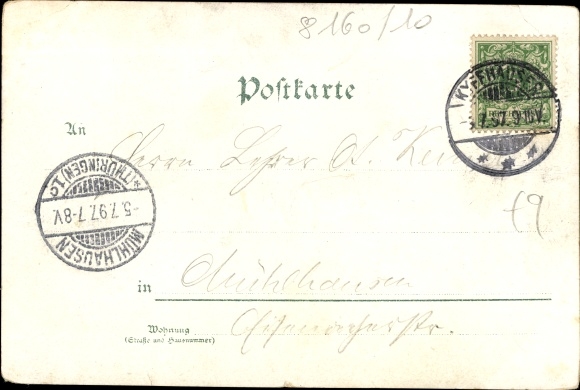 8160/10
Postkarte
KYFFHÄUSER
7.97. 9-10V.
An
Herrn Lehrer A.
MÜHLHAUSEN
* (THÜRINGEN) 1 c
-5.7.97. 7-8V.
in Mühlhausen
Wohnung
(Straße und Hausnummer)
Eisenacherstr.